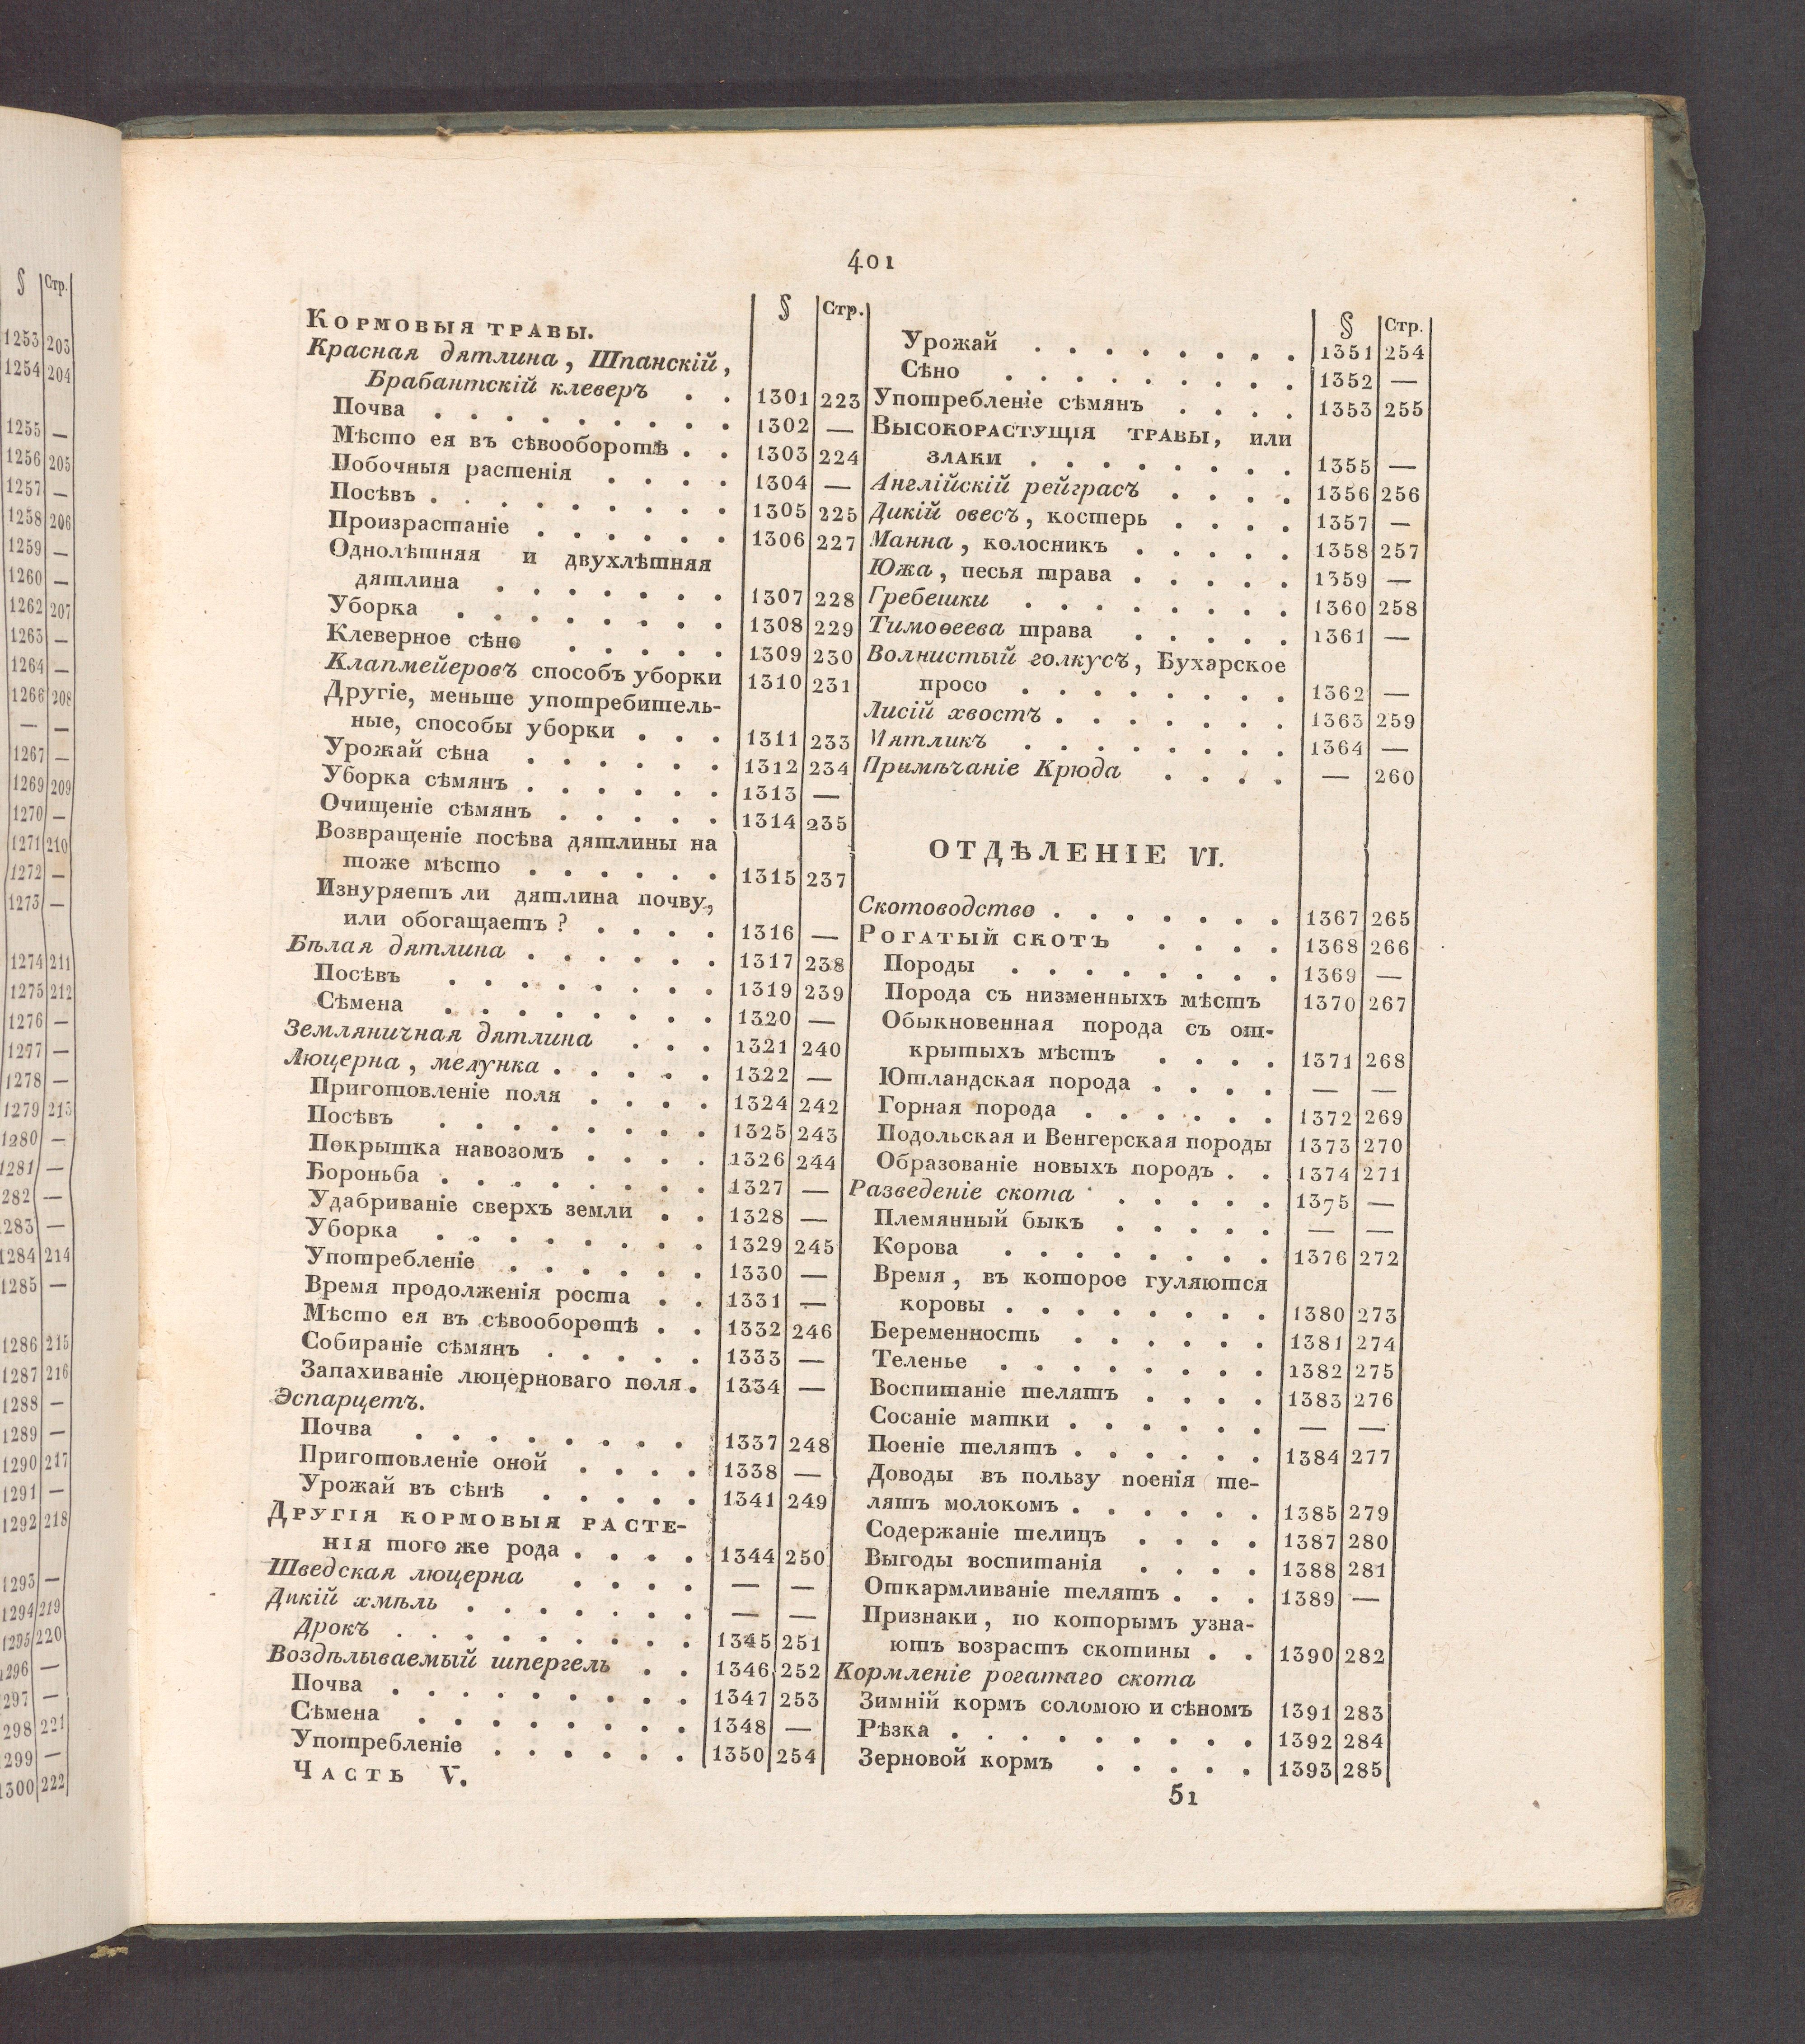 § Стр.
1253 203
1254 204
1255 —
1256 205
1257 —
1258 206
1259 —
1260 —
1262 207
1263 —
1264 —
1266 208
— —
1267 —
1269 209
1270 —
1271 210
1272 —
1273 —
1274 211
1275 212
1276 —
1277 —
1278 —
1279 213
1280 —
1281 —
282 —
283 —
1284 214
1285 —
1286 215
1287 216
1288 —
1289 —
1290 217
1291 —
1292 218
1293 —
1294 219
1295 220
1296 —
297 —
298 221
299 —
1300 222
401
§ Стр.
Кормовыя травы.
Красная дятлина, Шпанскій,
Брабантскій клеверъ . . 1301 223
Почва . . . . . . . . . 1302 —
Мѣсто ея въ сѣвооборотѣ . . 1303 224
Побочныя растенія . . . . 1304 —
Посѣвъ . . . . . . . . . 1305 225
Произрастаніе . . . . . . 1306 227
Однолѣтняя и двухлѣтняя
дятлина . . . . . . . 1307 228
Уборка . . . . . . . . 1308 229
Клеверное сѣно . . . . . 1309 230
Клапмейеровъ способъ уборки 1310 231
Другіе, меньше употребитель-
ные, способы уборки . . . 1311 233
Урожай сѣна . . . . . . 1312 234
Уборка сѣмянъ . . . . . . 1313 —
Очищеніе сѣмянъ . . . . . 1314 235
Возвращеніе посѣва дятлины на
тоже мѣсто . . . . . . 1315 237
Изнуряетъ ли дятлина почву,
или обогащаетъ? . . . . 1316 —
Бѣлая дятлина . . . . . . 1317 238
Посѣвъ . . . . . . . . 1319 239
Сѣмена . . . . . . . . 1320 —
Земляничная дятлина . . . 1321 240
Люцерна, медунка . . . . . 1322 —
Приготовленіе поля . . . . 1324 242
Посѣвъ . . . . . . . . 1325 243
Покрышка навозомъ . . . . 1326 244
Бороньба . . . . . . . . 1327 —
Удабриваніе сверхъ земли . . 1328 —
Уборка . . . . . . . . 1329 245
Употребленіе . . . . . . 1330 —
Время продолженія роста . . 1331 —
Мѣсто ея въ сѣвооборотѣ . . 1332 246
Собираніе сѣмянъ . . . . . 1333 —
Запахиваніе люцерноваго поля . 1334 —
Эспарцетъ.
Почва . . . . . . . . 1337 248
Приготовленіе оной . . . . 1338 —
Урожай въ сѣнѣ . . . . . 1341 249
Другія кормовыя расте-
нія того же рода . . . . 1344 250
Шведская люцерна . . . . — —
Дикій хмѣль . . . . . . . — —
Дрокъ . . . . . . . . . 1345 251
Воздѣлываемый шпергель . . 1346 252
Почва . . . . . . . . . 1347 253
Сѣмена . . . . . . . . 1348 —
Употребленіе . . . . . . 1350 254
Часть V.
§ Стр.
Урожай . . . . . . . . 1351 254
Сѣно . . . . . . . . . 1352 —
Употребленіе сѣмянъ . . . . 1353 255
Высокорастущія травы, или
злаки . . . . . . . . 1355 —
Англійскій рейграсъ . . . . 1356 256
Дикій овесъ, костерь . . . . 1357 —
Манна, колосникъ . . . . . 1358 257
Южа, песья трава . . . . . 1359 —
Гребешки . . . . . . . . 1360 258
Тимоѳеева трава . . . . . 1361 —
Волнистый голкусъ, Бухарское
просо . . . . . . . . 1362 —
Лисій хвостъ . . . . . . . 1363 259
Мятликъ . . . . . . . . 1364 —
Примѣчаніе Крюда . . . . — 260
ОТДѢЛЕНІЕ VI.
Скотоводство . . . . . . . 1367 265
Рогатый скотъ . . . . 1368 266
Породы . . . . . . . . 1369 —
Порода съ низменныхъ мѣстъ 1370 267
Обыкновенная порода съ от-
крытыхъ мѣстъ . . . . 1371 268
Ютландская порода . . . . — —
Горная порода . . . . . . 1372 269
Подольская и Венгерская породы 1373 270
Образованіе новыхъ породъ . . 1374 271
Разведеніе скота . . . . . 1375 —
Племянный быкъ . . . . . — —
Корова . . . . . . . . 1376 272
Время, въ которое гуляются
коровы . . . . . . . . 1380 273
Беременность . . . . . . 1381 274
Теленье . . . . . . . . 1382 275
Воспитаніе телятъ . . . . 1383 276
Сосаніе матки . . . . . . — —
Поеніе телятъ . . . . . . 1384 277
Доводы въ пользу поенія те-
лятъ молокомъ . . . . . . 1385 279
Содержаніе телицъ . . . . 1387 280
Выгоды воспитанія . . . . 1388 281
Откармливаніе телятъ . . . 1389 —
Признаки, по которымъ узна-
ютъ возрастъ скотины . . 1390 282
Кормленіе рогатаго скота
Зимній кормъ соломою и сѣномъ 1391 283
Рѣзка . . . . . . . . . 1392 284
Зерновой кормъ . . . . . 1393 285
51